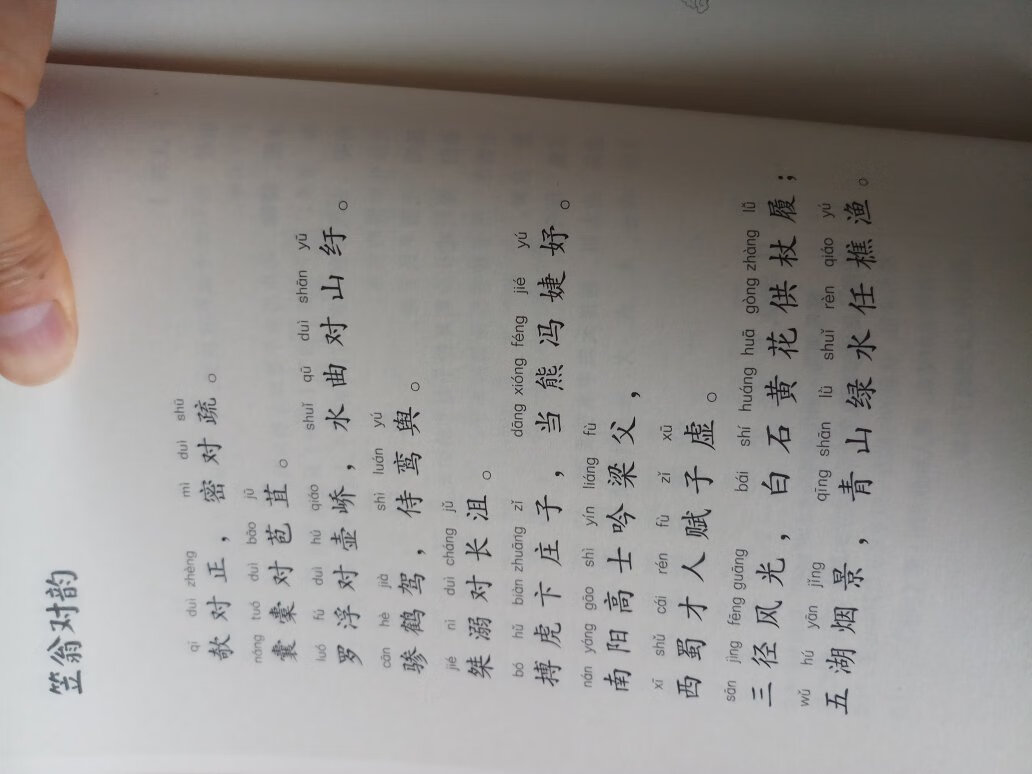 笠翁对韵
qī duì zhèng mì duì shū
欹对正，密对疏。
náng tuó duì bāo jū
囊橐对苞苴。
luó fú duì hú qiáo shuǐ qū duì shān yū
罗浮对壶峤，水曲对山纡。
cān hè jià shì luán yú
骖鹤驾，侍鸾舆。
jié nì duì cháng jǔ
桀溺对长沮。
bó hǔ biàn zhuāng zǐ dāng xióng féng jié yú
搏虎卞庄子，当熊冯婕妤。
nán yáng gāo shì yín liáng fù
南阳高士吟梁父，
xī shǔ cái rén fù zǐ xū
西蜀才人赋子虚。
sān jìng fēng guāng bái shí huáng huā gòng zhàng lǚ
三径风光，白石黄花供杖履；
wǔ hú yān jǐng qīng shān lǜ shuǐ rèn qiáo yú
五湖烟景，青山绿水任樵渔。